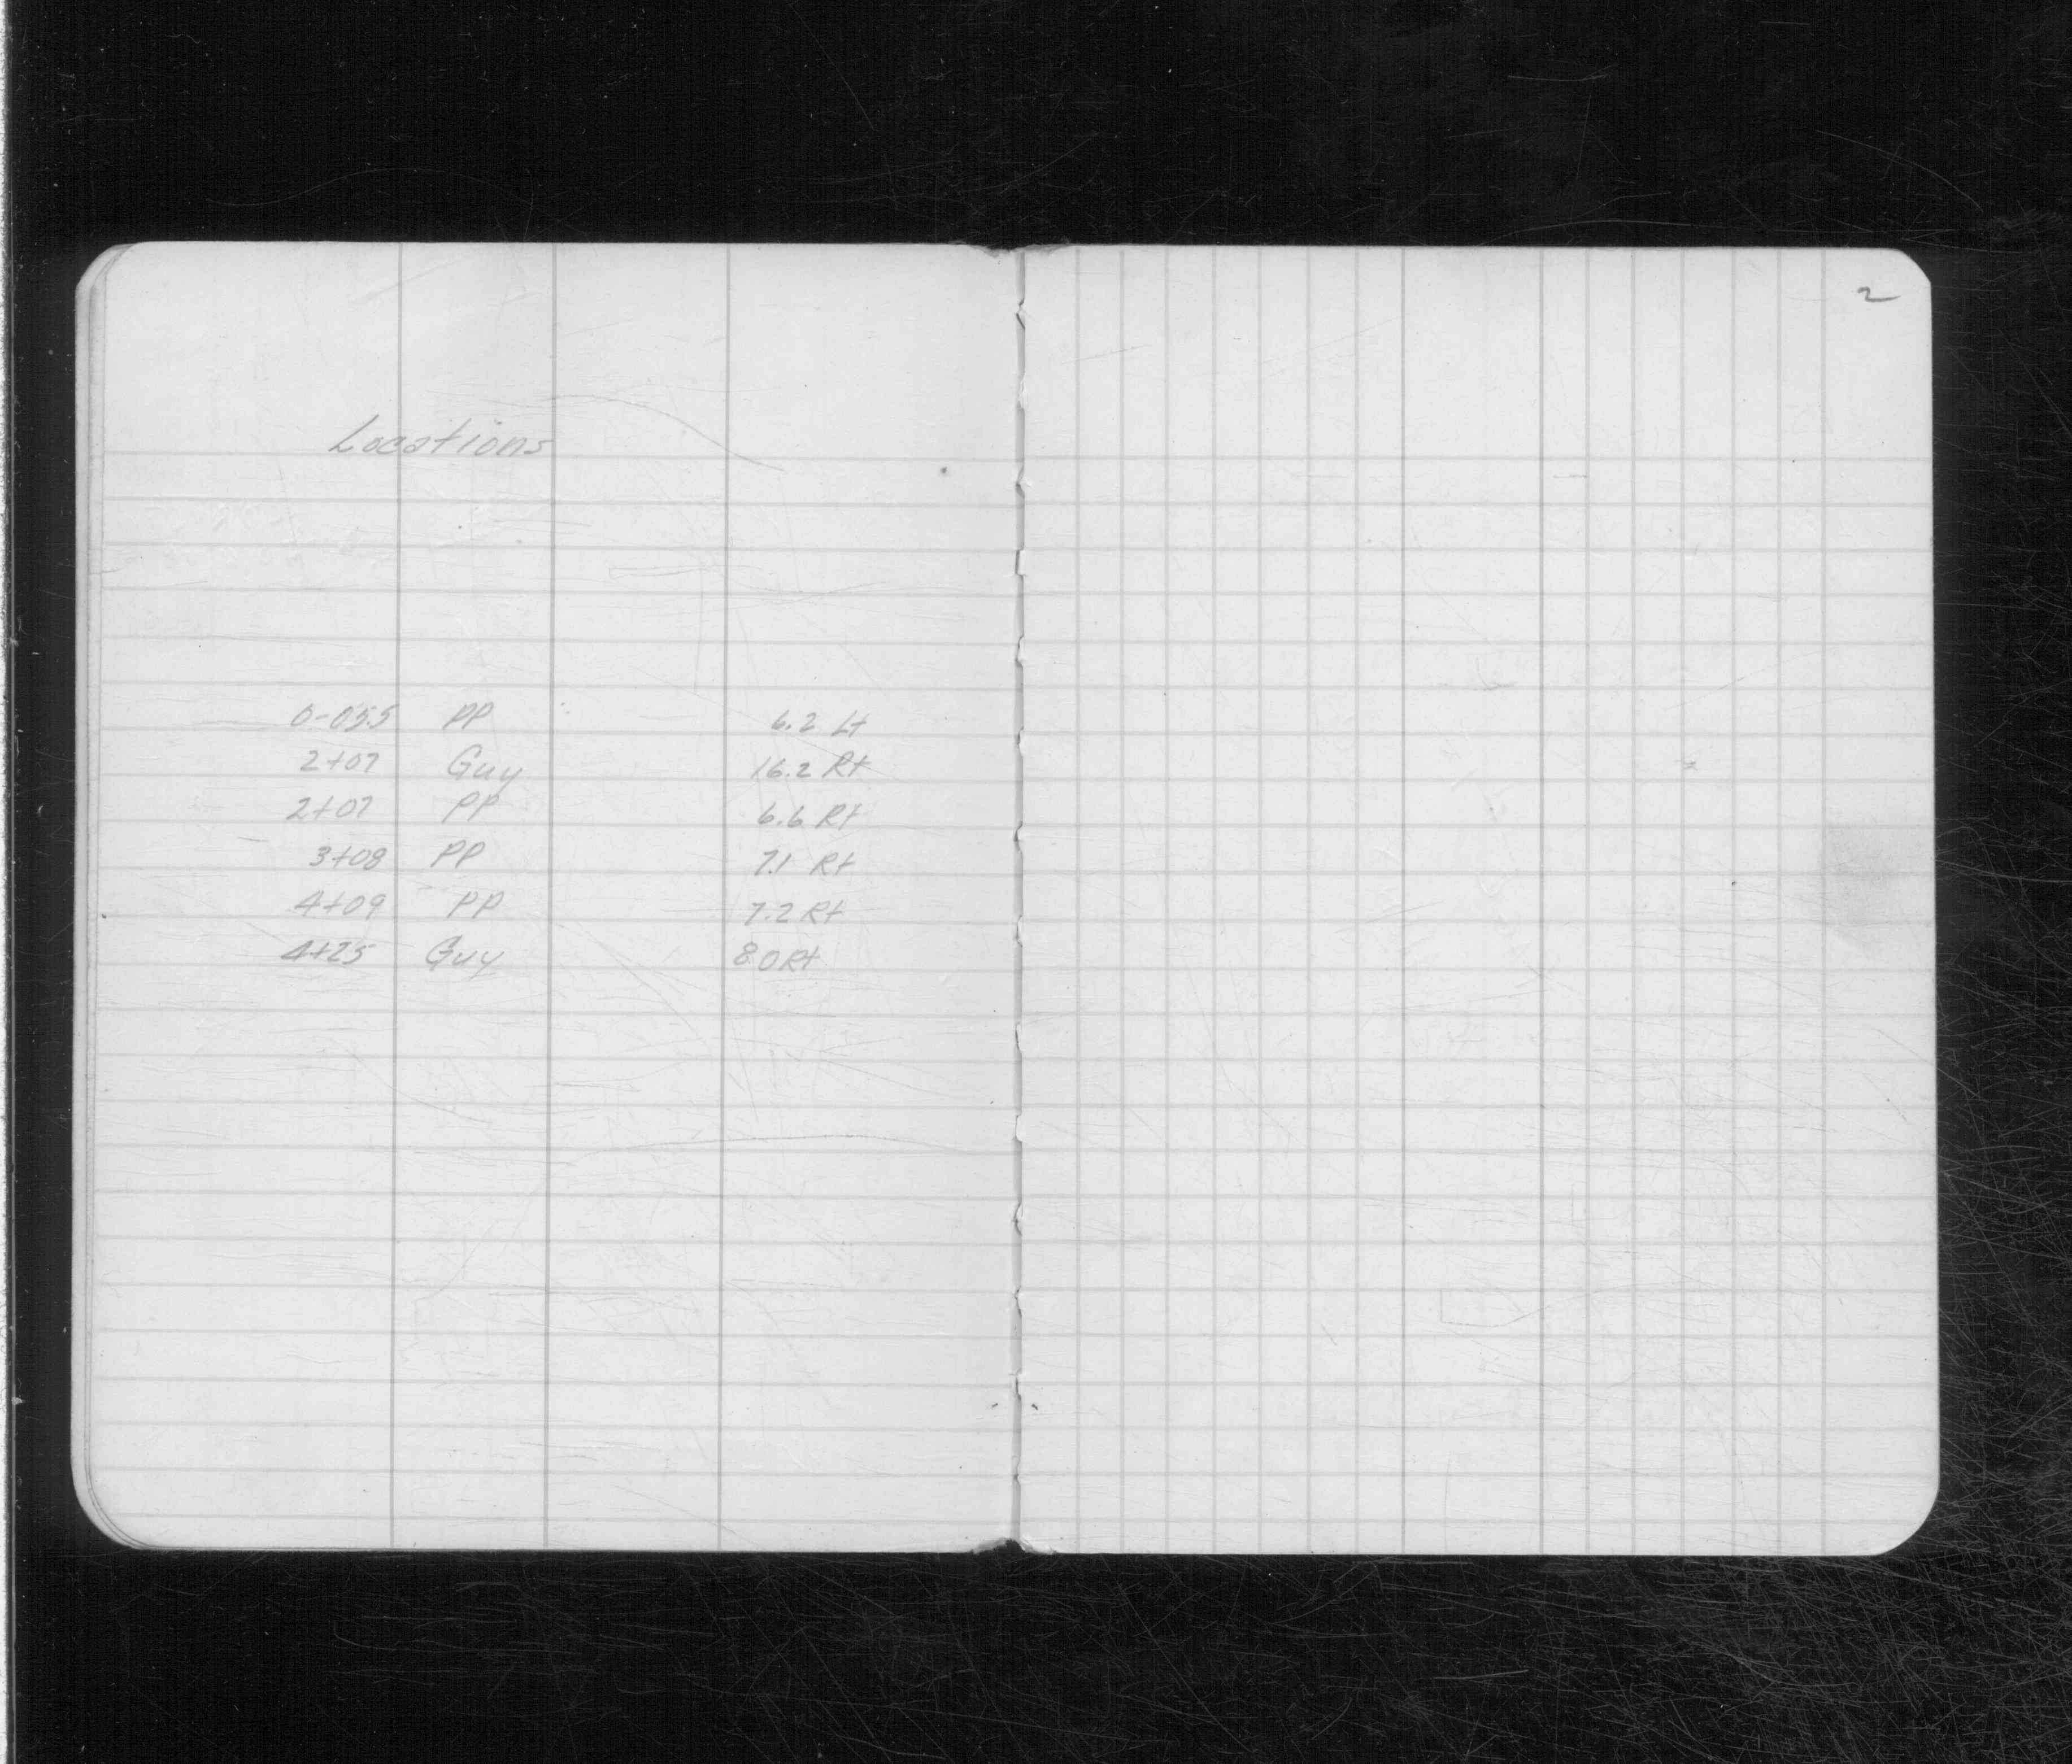 2
Locations
0-05.5 PP 6.2 Lt
2+07 Guy 16.2 Rt
2+07 PP 6.6 Rt
3+08 PP 7.1 Rt
4+09 PP 7.2 Rt
4+25 Guy 8.0 Rt